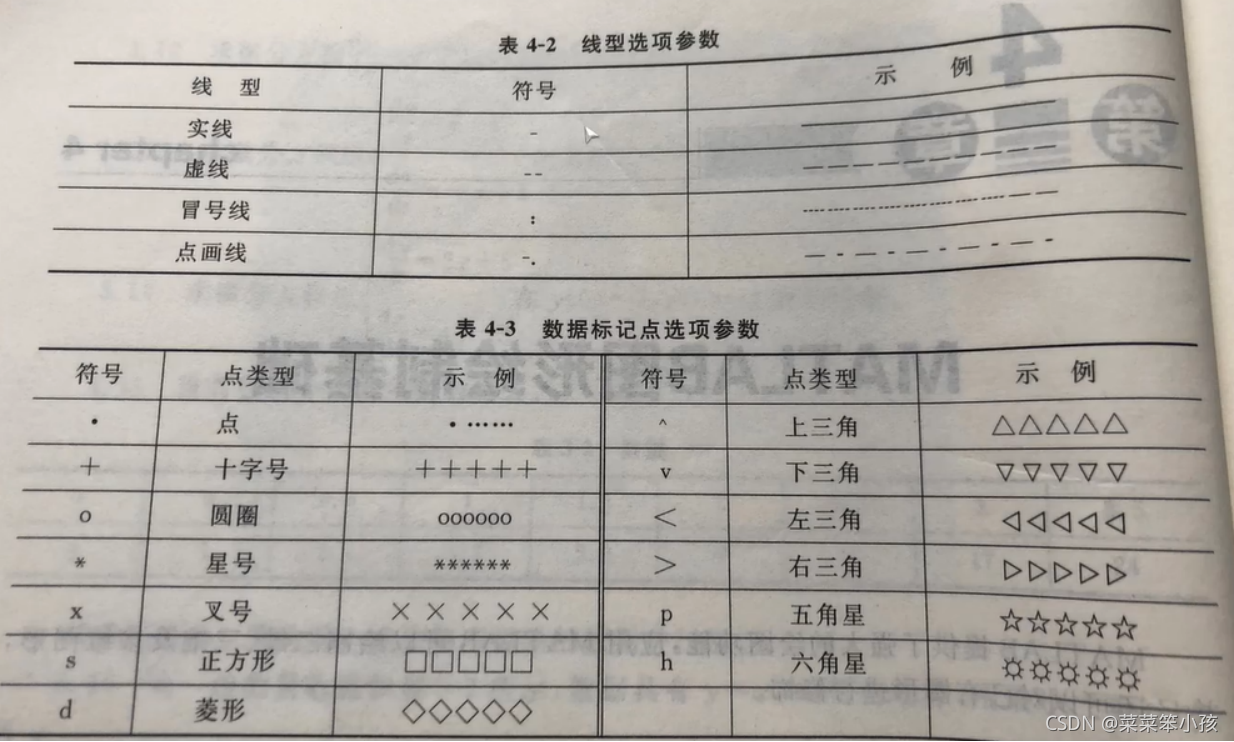 表 4-2 线型选项参数
线 型 符号 示 例
实线 -
虚线 --
冒号线 :
点画线 -.
表 4-3 数据标记点选项参数
符号 点类型 示 例 符号 点类型 示 例
· 点 ········ ^ 上三角 △△△△△
+ 十字号 +++++ v 下三角 ▽▽▽▽▽
o 圆圈 oooooo < 左三角 ◁◁◁◁◁
* 星号 ****** > 右三角 ▷▷▷▷▷
x 叉号 ××××× p 五角星 ☆☆☆☆☆
s 正方形 □□□□□ h 六角星
d 菱形 ◇◇◇◇◇
CSDN @菜菜笨小孩